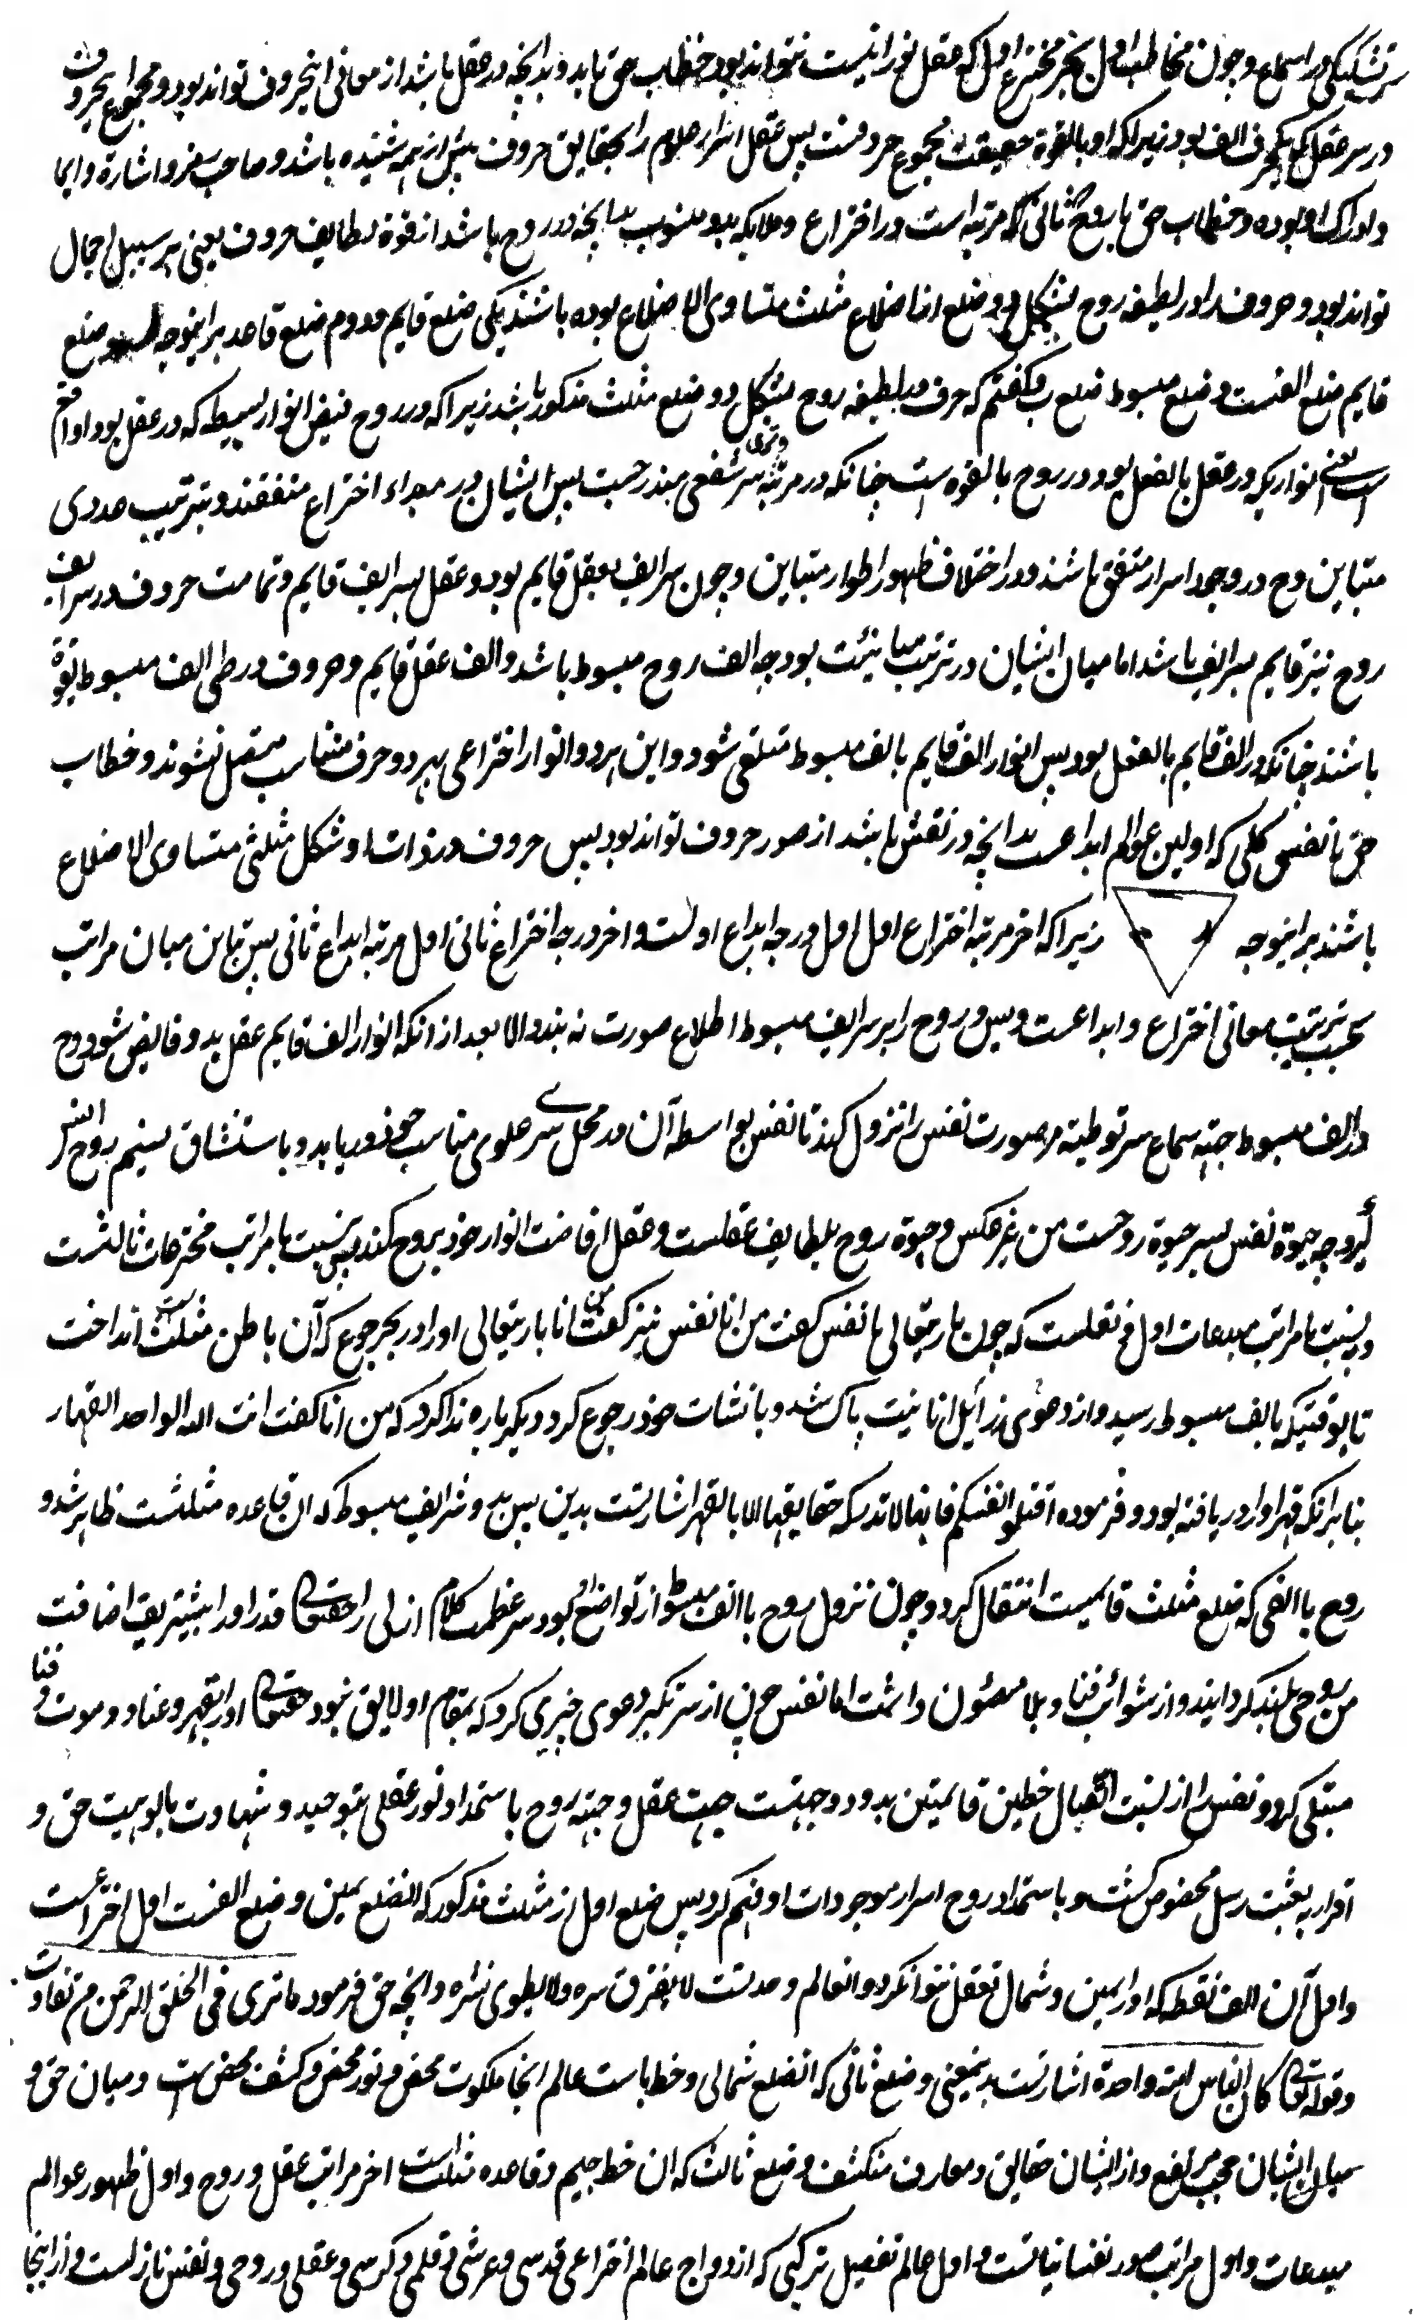 در اسماع وچون مخاطب اول بحر مخترع اول که عقل نورانیست نتواند بود خطاب حق باید و بدانچه در عقل باشد از معانی اینحروف تواند بود و مجموع اینحروف
در سر عقل یکحرف الف بود زیرا که او بالقوة حقیقت مجموع حروفست پس عقل اسرار علوم را بحقایق حروف پیش از همه شنیده باشد و صاحب سر و اشاره و ایما
و ادراک او بوده و خطاب حق با روح ثانی که مرتبه است در اختراع و ملایکه بدو منسوب بدانچه در روح باشد از قوة لطایف حروف یعنی بر سبیل اجمال
تواند بود و حروف را در لطیفه روح بشکل دو ضلع از اضلاع مثلث متساوی الاضلاع بوده باشند یکی ضلع قایم و دوم ضلع قاعد براینوجه ضلع
قایم ضلع الفست و ضلع مبسوط ضلع ب و گفتیم که حرف در لطیفه روح بشکل دو ضلع مثلث مذکور باشد زیرا که در روح فیض انوار بسیطه که در عقل بود واقع
است یعنی انواریکه در عقل بالفعل بود در روح بالقوه است چنانکه در مرتبه سر شفعی مندرجست پس ایشان در مبداء اختراع متفقند و بترتیب عددی
متباین وح در وجود اسرار متفق باشند و در اختلاف ظهور اطوار متباین و چون سر الف بعقل قایم بود و عقل بسر الف قایم و تمامت حروف در سر الف
روح نیز قایم بسر الف باشد اما میان ایشان در ترتیب مباینت بود چه الف روح مبسوط باشد و الف عقل قایم و حروف در طی الف مبسوط بالقوة
باشند چنانکه در الف قایم بالفعل بود پس انوار الف قایم بالف مبسوط متلقی شود و این هر دو انوار اختراعی بهر دو حرف متناسب متصل نشوند و خطاب
حق با نفس کلی که اولین عوالم ابداعست بدانچه در نفس باشد از صور حروف تواند بود پس حروف در ذات او شکل مثلثی متساوی الاضلاع
باشند براینوجه زیرا که اخر مرتبه اختراع اول اول درجه ابداع اولست و اخر درجه اختراع ثانی اول مرتبه ابداع ثانی پس تباین میان مراتب
بحسب ترتیب معانی اختراع و ابداعست و پس و روح را بر سر الف مبسوط اطلاع صورت نه بندد الا بعد از انکه انوار الف قایم عقل بدو فایض شود وح
در الف مبسوط جهة سماع سر توطیه مر صورت نفس را نزول کند تا نفس بواسطه آن در محل سر علوی مناسب خود دریابد و باستنشاق نسیم روح انس
گیرد چه حیوة نفس بسر حیوة روحست من غیر عکس و حیوة روح بلطایف عقلست و عقل افاضت انوار خود بروح کند پس نسبت با مراتب مخترعات ثالثست
و به نسبت با مراتب مبدعات اول و نقلست که چون باریتعالی با نفس گفت من انا نفس نیز گفت من انا باریتعالی او را در بحر جوع که آن باطن مثلث است انداخت
تا بوقتیکه بالف مبسوط رسید و از دعوی رذایل انانیت پاک شد و با نشات خود رجوع کرد دیگر باره ندا کرد که من انا گفت انت الله الواحد القهار
بنا بر انکه قهر او را دریافته بود و فرموده اقتلوا انفسکم فانها لا تدرک حقایقها الا بالقهر اشارتست بدین پس بدو سر الف مبسوط که ان قاعده مثلثست ظاهر شد و
روح با الفی که ضلع مثلث قایمست انتقال کرد و چون نزول روح با الف مبسوط از تواضع بود سر عظمت کلام ازلی را حقتعالی قدر او را بتشریف اضافت
من روحی بلند گردانید و از شوائب فنا و بلا مصئون داشت اما نفس چون از سر تکبر دعوی چیزی کرد که بمقام او لایق نبود حقتعالی او را بقهر و عناد و موت و فنا
مبتلی کرد و نفس را از نسبت اتصال خطین قایمتین بدو دو جهتست جهت عقل و جهة روح باستمداد نور عقلی بتوحید و شهادت بالوهیت حق و
اقرار به بعثت رسل مخصوص گشت و باستمداد روح اسرار موجودات او فهم کرد پس ضلع اول از مثلث مذکور که الضلع یمین و ضلع الفست اول اختراعست
و اول آن الف نقطه که او را یمین و شمال تعقل نتوان کرد و انعالم وحدتست لا یفترق سره ولا یطوی نشره و انچه حق فرمود ما تری فی الخلق الرحمن من تفاوت
و قوله تعالی کان الناس امة واحدة اشارتست بدینمعنی و ضلع ثانی که انضلع شمالی و خط باست عالم انجا ملکوت محض و نور محض و کشف محض است و میان حق و
میان ایشان حجب مرتفع و از ایشان حقایق و معارف منکشف و ضلع ثالث که ان خط جیم و قاعده مثلث است اخر مراتب عقل و روح و اول ظهور عوالم
مبدعات و اول مراتب صور نفسانیاتست و اول عالم تفصیل ترکیبی که ازدواج عالم اختراعی قدسی و عرشی و قلمی و کرسی و عقلی و روحی و نفس نازلست و از اینجا